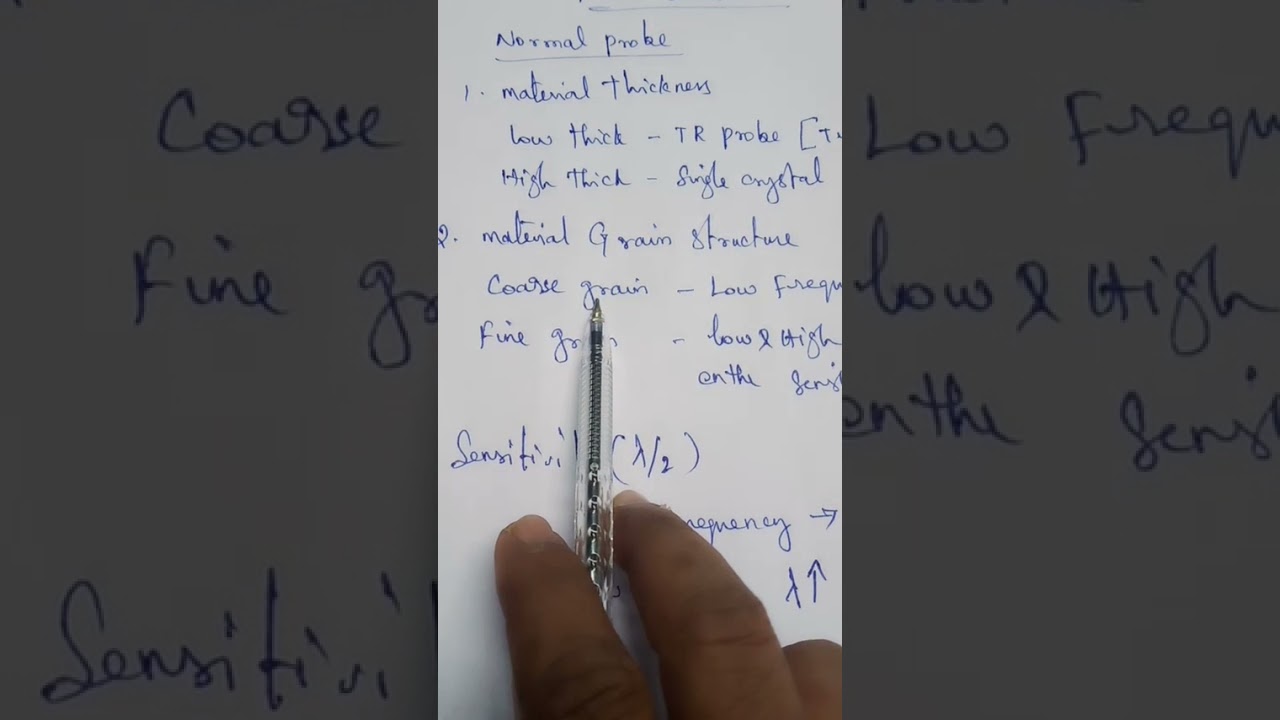 Normal probe
1. material thickness
Low thick - TR probe [T
High thick - Single crystal
2. material Grain structure
Coarse grain - Low Frequ
Fine - low & High
on the Sensi
Sensitivi (λ/2)
requency →
λ↑